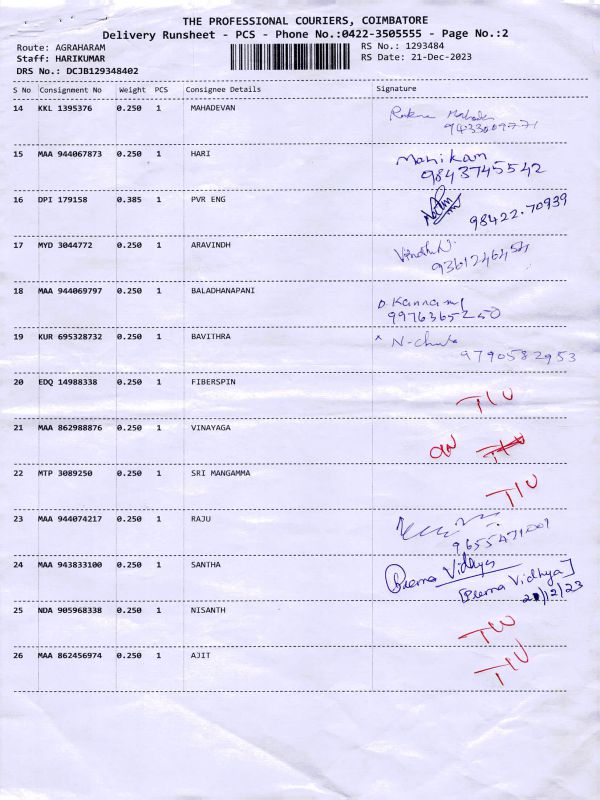 THE PROFESSIONAL COURIERS, COIMBATORE
Delivery Runsheet - PCS - Phone No.:0422-3505555 - Page No.:2
Route: AGRAHARAM RS No.: 1293484
Staff: HARIKUMAR RS Date: 21-Dec-2023
DRS No.: DCJB129348402
S No Consignment No Weight PCS Consignee Details Signature
14 KKL 1395376 0.250 1 MAHADEVAN
9433009771
15 MAA 944067873 0.250 1 HARI Manikam
9843745542
16 DPI 179158 0.385 1 PVR ENG
98422.70939
17 MYD 3044772 0.250 1 ARAVINDH
18 MAA 944069797 0.250 1 BALADHANAPANI
9976365250
19 KUR 695328732 0.250 1 BAVITHRA
9790582953
20 EDQ 14988338 0.250 1 FIBERSPIN
21 MAA 862988876 0.250 1 VINAYAGA
22 MTP 3089250 0.250 1 SRI MANGAMMA
23 MAA 944074217 0.250 1 RAJU
24 MAA 943833100 0.250 1 SANTHA Prema Vidhya
[Prema Vidhya]
21/12/23
25 NDA 905968338 0.250 1 NISANTH
26 MAA 862456974 0.250 1 AJIT